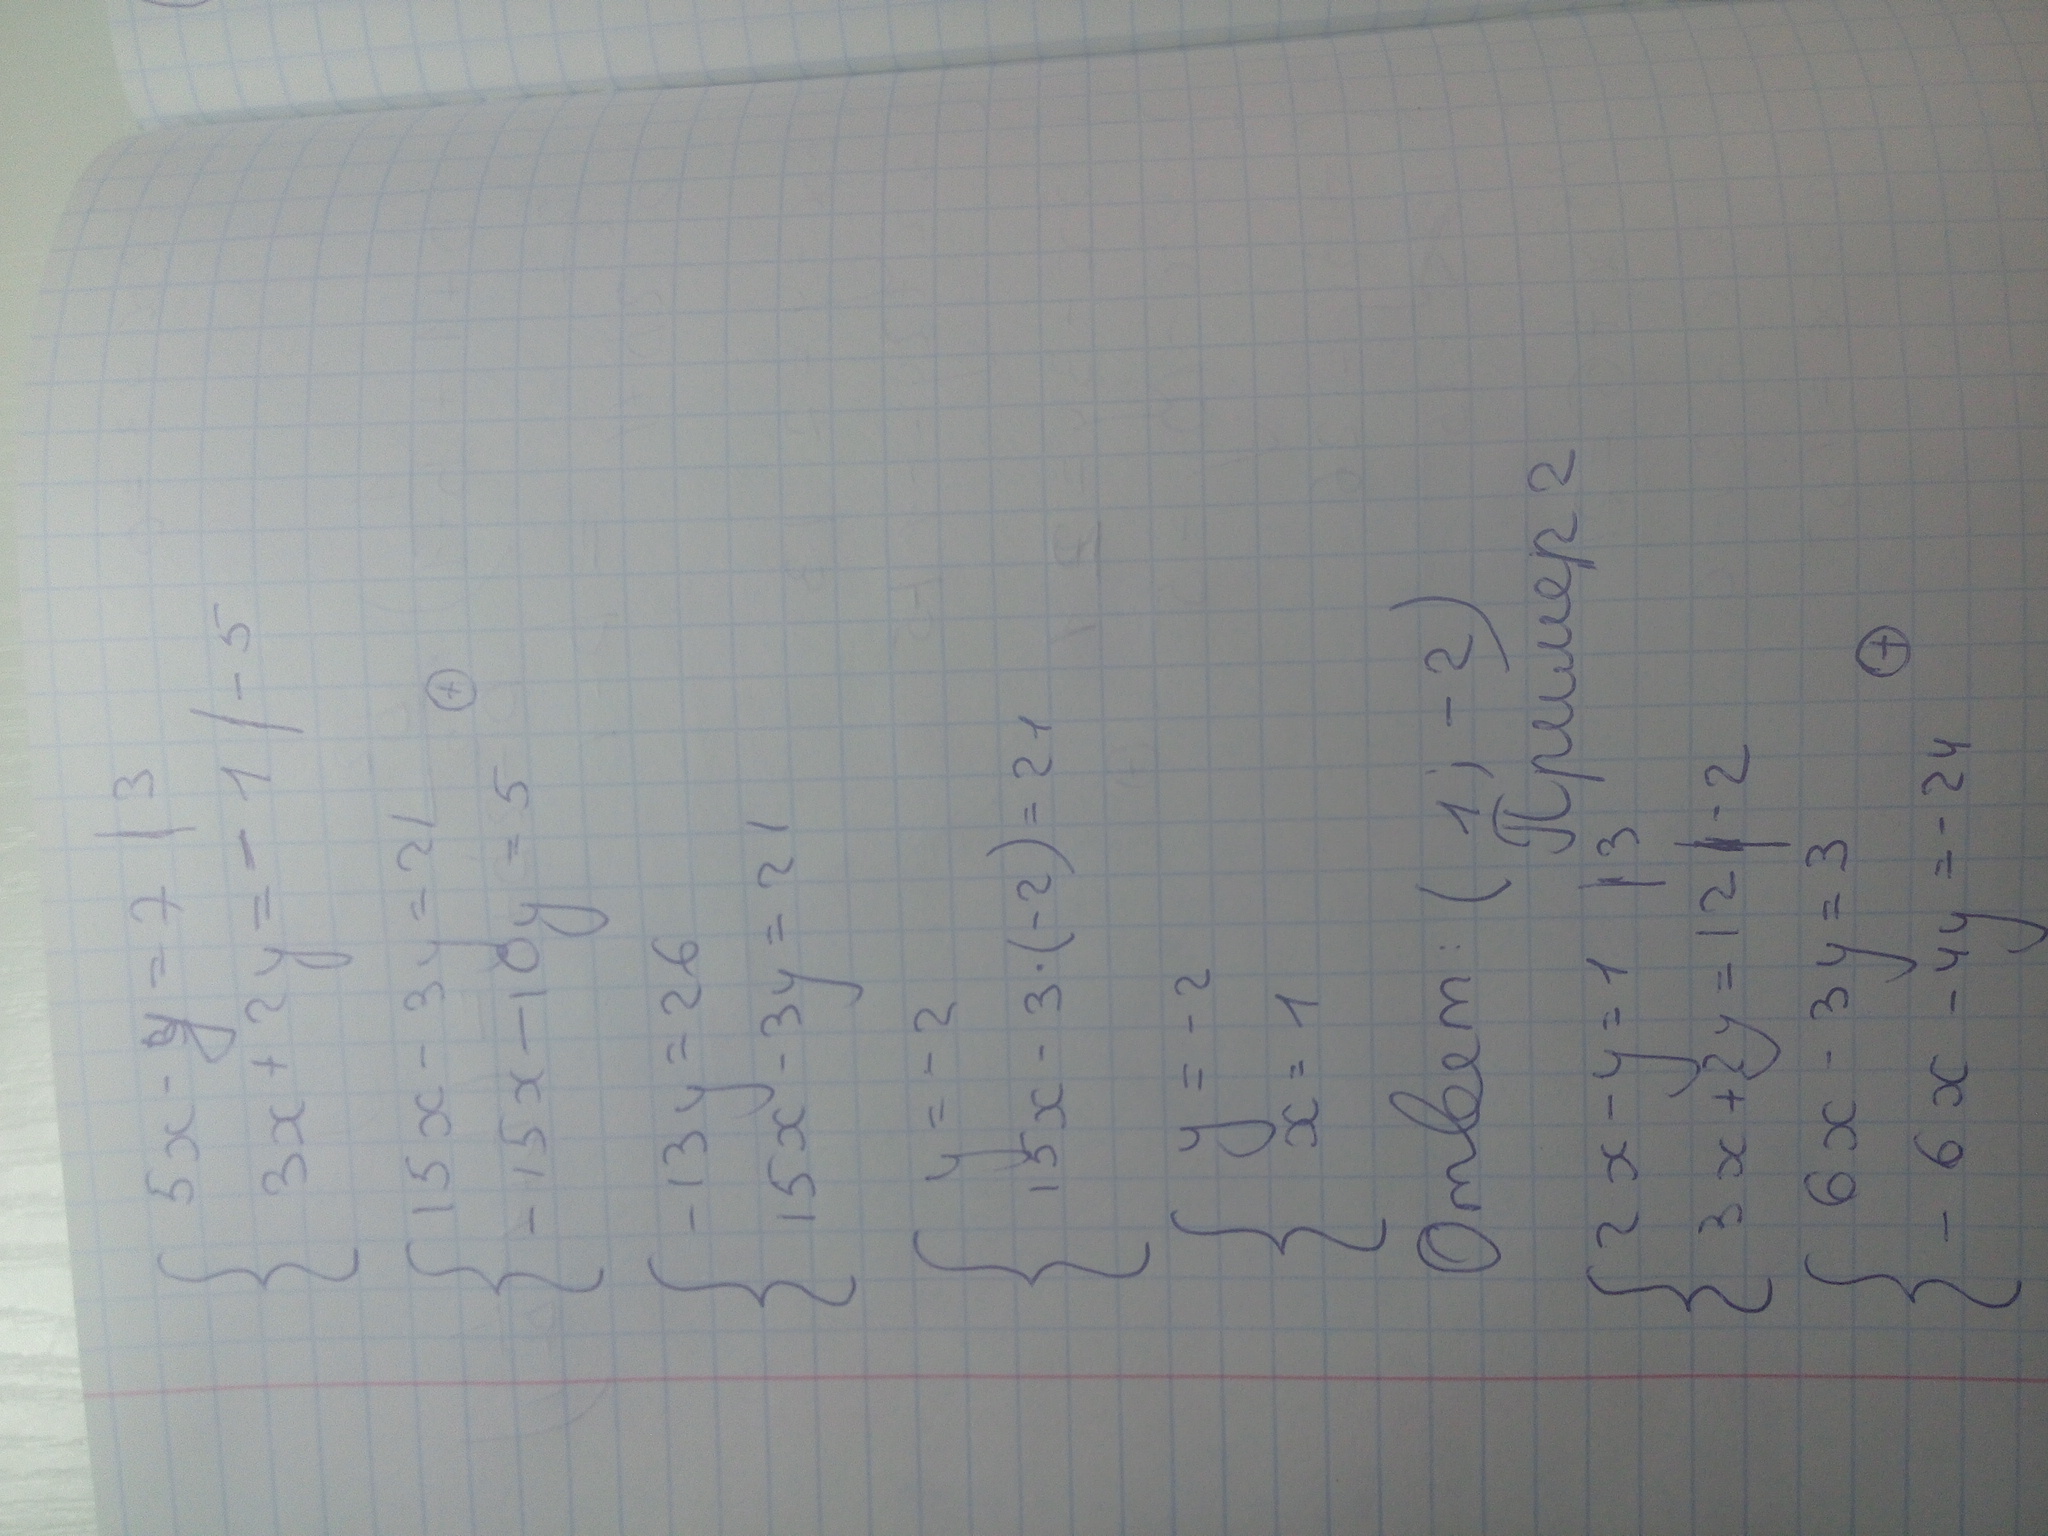 5x - y = 7 | 3
3x + 2y = - 1 / - 5
15x - 3y = 21 (+)
-15x - 10y = 5
-13y = 26
15x - 3y = 21
y = -2
15x - 3·(-2) = 21
y = -2
x = 1
Ответ: (1; -2)
Пример 2
2x - y = 1 | 3
3x + 2y = 12 | -2
6x - 3y = 3 (+)
-6x - 4y = -24